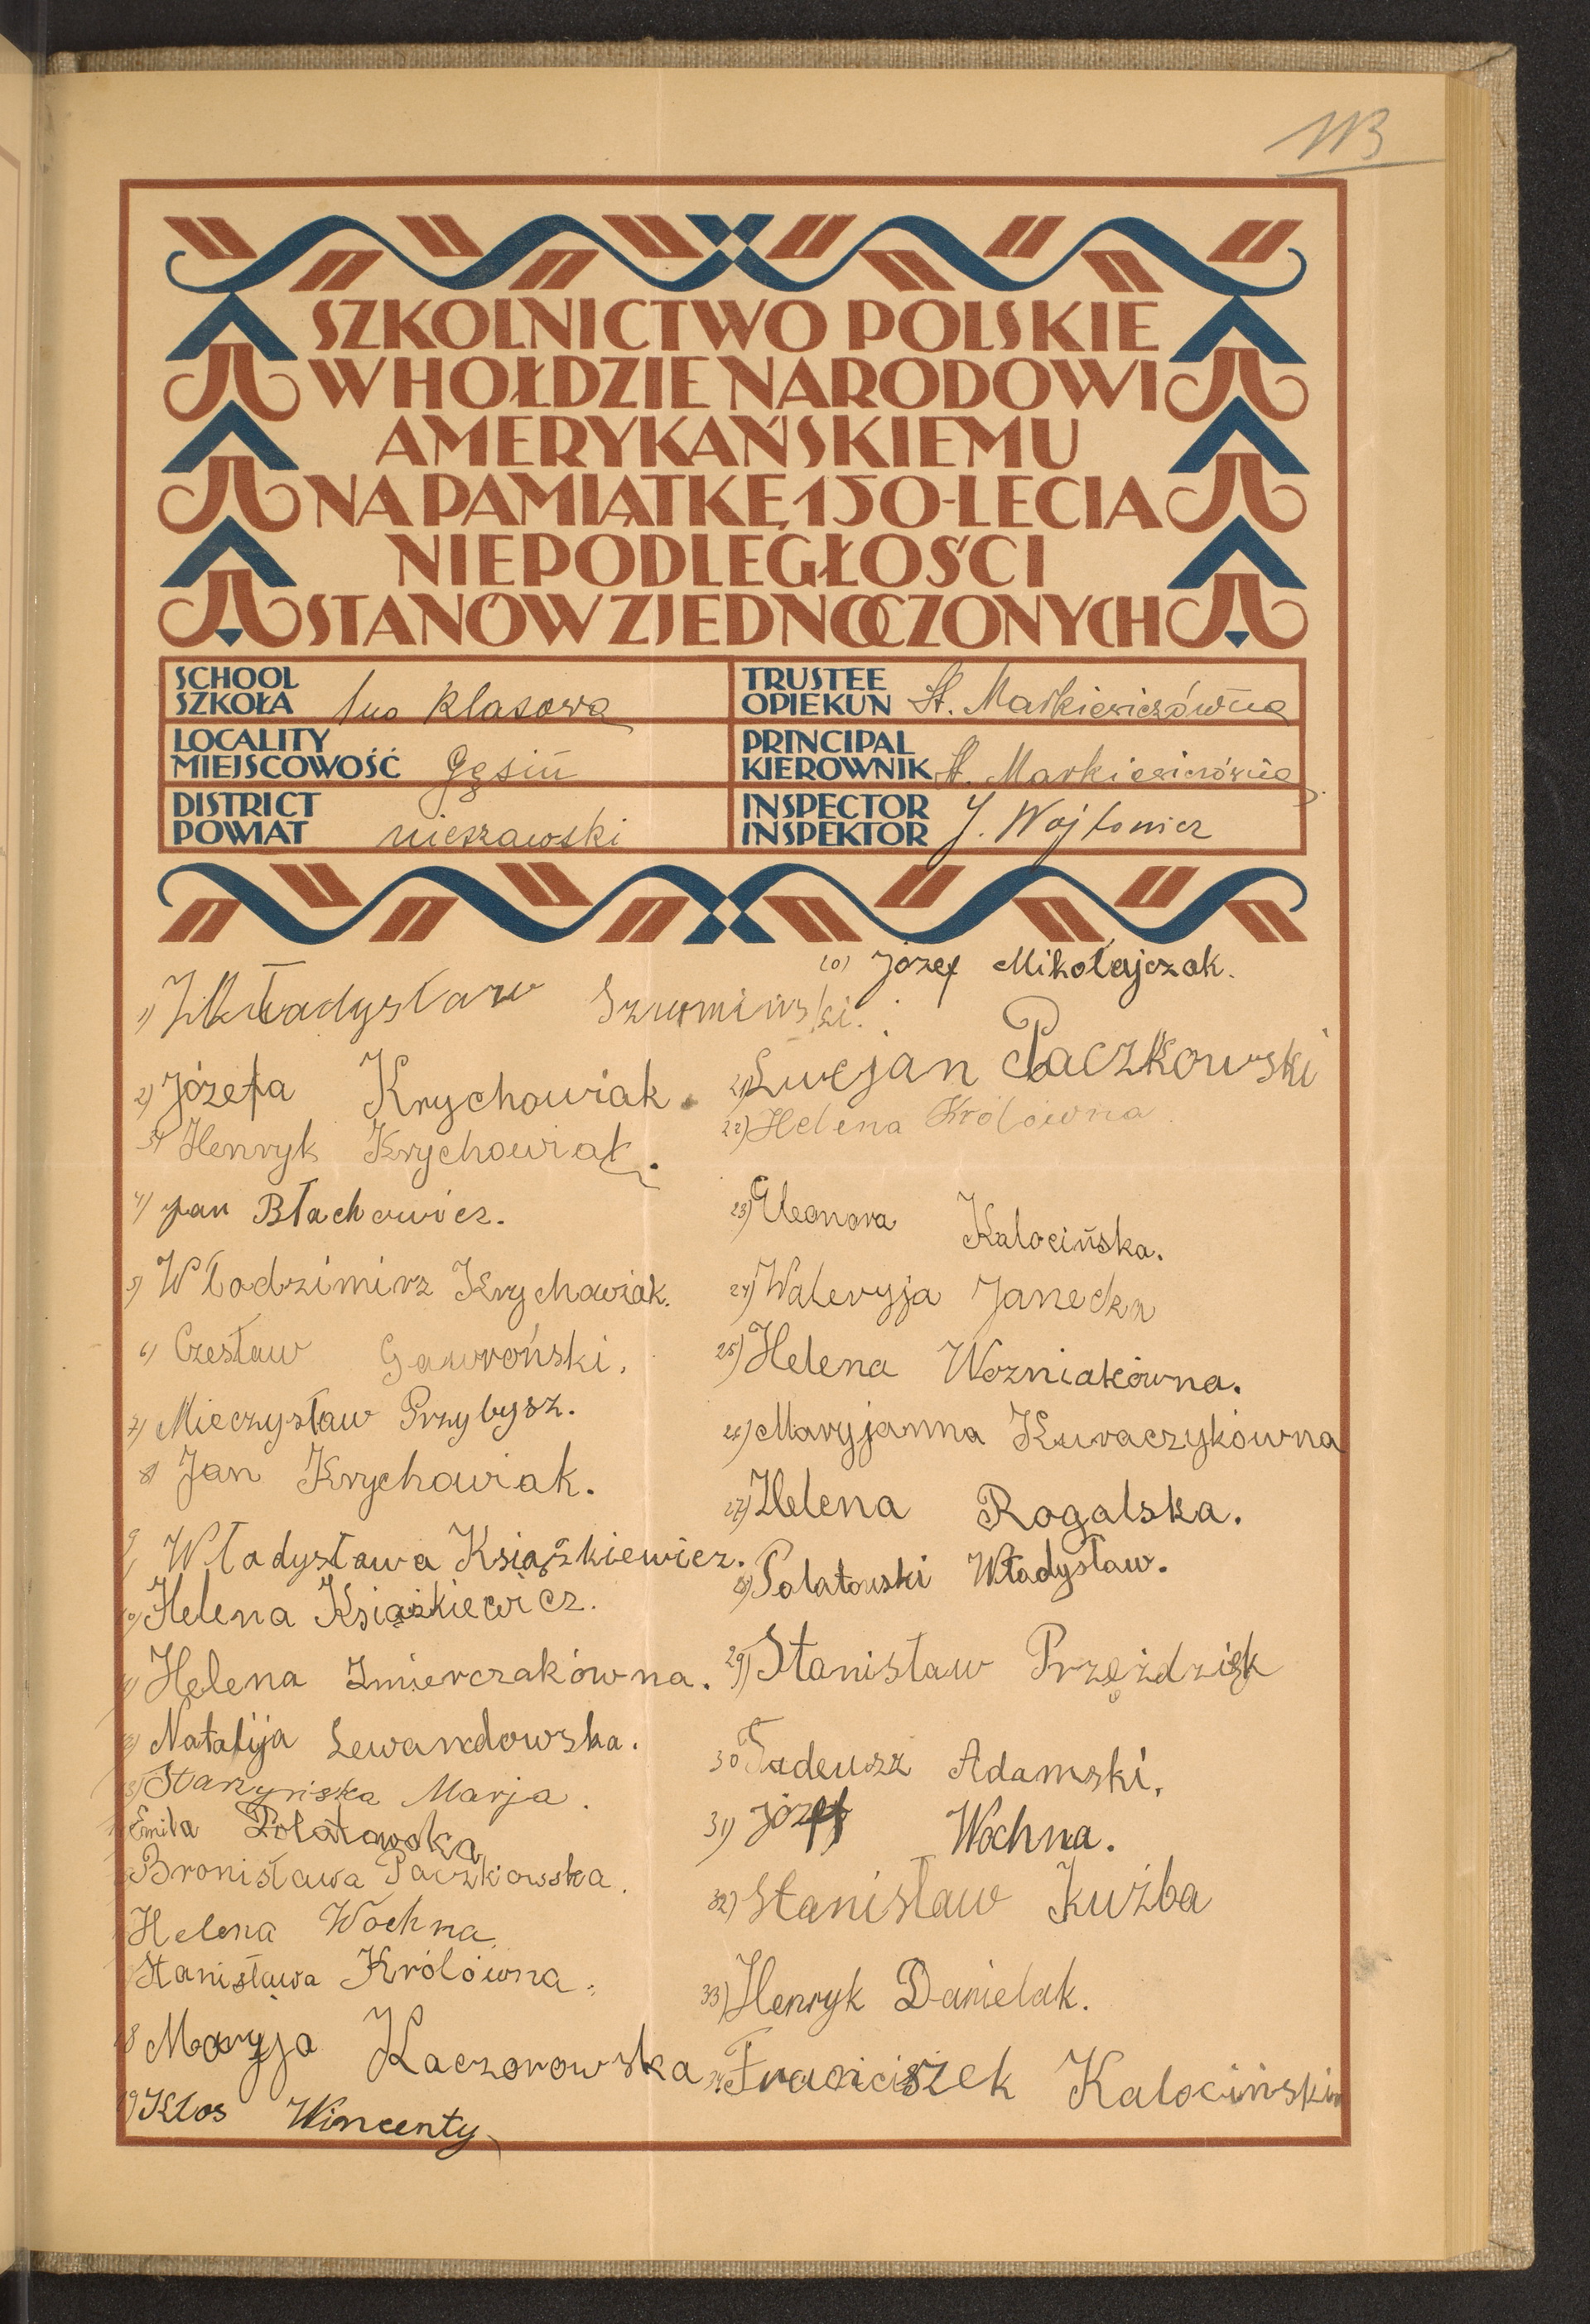 113
SZKOLNICTWO POLSKIE
W HOŁDZIE NARODOWI
AMERYKAŃSKIEMU
NA PAMIĄTKĘ 150-LECIA
NIEPODLEGŁOŚCI
STANÓW ZJEDNOCZONYCH
SCHOOL
SZKOŁA 1no klasowa
TRUSTEE
OPIEKUN St. Markiewiczówna
LOCALITY
MIEJSCOWOŚĆ Gęsin
PRINCIPAL
KIEROWNIK St. Markiewiczówna
DISTRICT
POWIAT nieszawski
INSPECTOR
INSPEKTOR J. Wojtowicz
1) Władysław Szumiński.
2) Józefa Krychowiak.
3) Henryk Krychowiak.
4) Jan Błachowicz.
5) Włodzimirz Krychowiak.
6) Czesław Gawroński.
7) Mieczysław Przybysz.
8) Jan Krychowiak.
9) Władysława Książkiewicz.
10) Helena Książkiewicz.
11) Helena Zmierczakówna.
12) Natalija Lewandowska.
13) Starzyńska Marja.
Emila Polatowska
Bronisława Paczkowska.
Helena Wochna.
Stanisława Królówna.
18 Maryja Kaczorowska
19) Kłos Wincenty
20) Józef Mikołajczak.
21) Lucjan Paczkowski
22) Helena Królówna.
23) Eleonora Kalocińska.
24) Waleryja Janecka
25) Helena Wozniakówna.
26) Maryjanna Kuraczykówna
27) Helena Rogalska.
28) Polatowski Władysław.
29) Stanisław Przężdzięk
30 Tadeusz Adamski.
31) Józef Wochna.
32) Stanisław Kuźba
33) Henryk Danielak.
34. Franciszek Kalociński